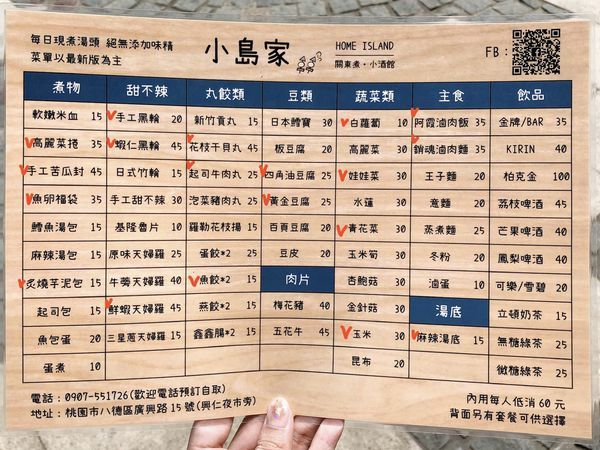 每日現煮湯頭 絕無添加味精
菜單以最新版為主
小島家
HOME ISLAND
關東煮·小酒館
FB：
煮物 甜不辣 丸餃類 豆類 蔬菜類 主食 飲品
軟嫩米血 15 手工黑輪 20 新竹貢丸 15 日本鱈寶 30 白蘿蔔 10 阿霞滷肉飯 35 金牌/BAR 35
高麗菜捲 35 蝦仁黑輪 45 花枝干貝丸 45 板豆腐 20 高麗菜 30 銷魂滷肉麵 35 KIRIN 40
手工苦瓜封 45 日式竹輪 15 起司牛肉丸 25 四角油豆腐 25 娃娃菜 30 王子麵 20 柏克金 100
魚卵福袋 35 手工甜不辣 30 泡菜豬肉丸 25 黃金豆腐 25 水蓮 30 意麵 20 荔枝啤酒 45
鱈魚湯包 15 基隆魯片 10 羅勒花枝揚 15 百頁豆腐 20 青花菜 30 蒸煮麵 25 芒果啤酒 40
麻辣湯包 15 原味天婦羅 25 蛋餃*2 25 豆皮 20 玉米筍 30 冬粉 20 鳳梨啤酒 40
炙燒芋泥包 15 牛蒡天婦羅 40 魚餃*2 15 肉片 杏鮑菇 30 滷蛋 10 可樂/雪碧 20
起司包 15 鮮蝦天婦羅 45 燕餃*2 15 梅花豬 40 金針菇 30 湯底 立頓奶茶 15
魚包蛋 20 三星蔥天婦羅 15 鑫鑫腸*2 15 五花牛 45 玉米 30 麻辣湯底 15 無糖綠茶 25
蛋煮 10 昆布 20 微糖綠茶 25
電話：0907-551726(歡迎電話預訂自取)
地址：桃園市八德區廣興路15號(興仁夜市旁)
內用每人低消60元
背面另有套餐可供選擇